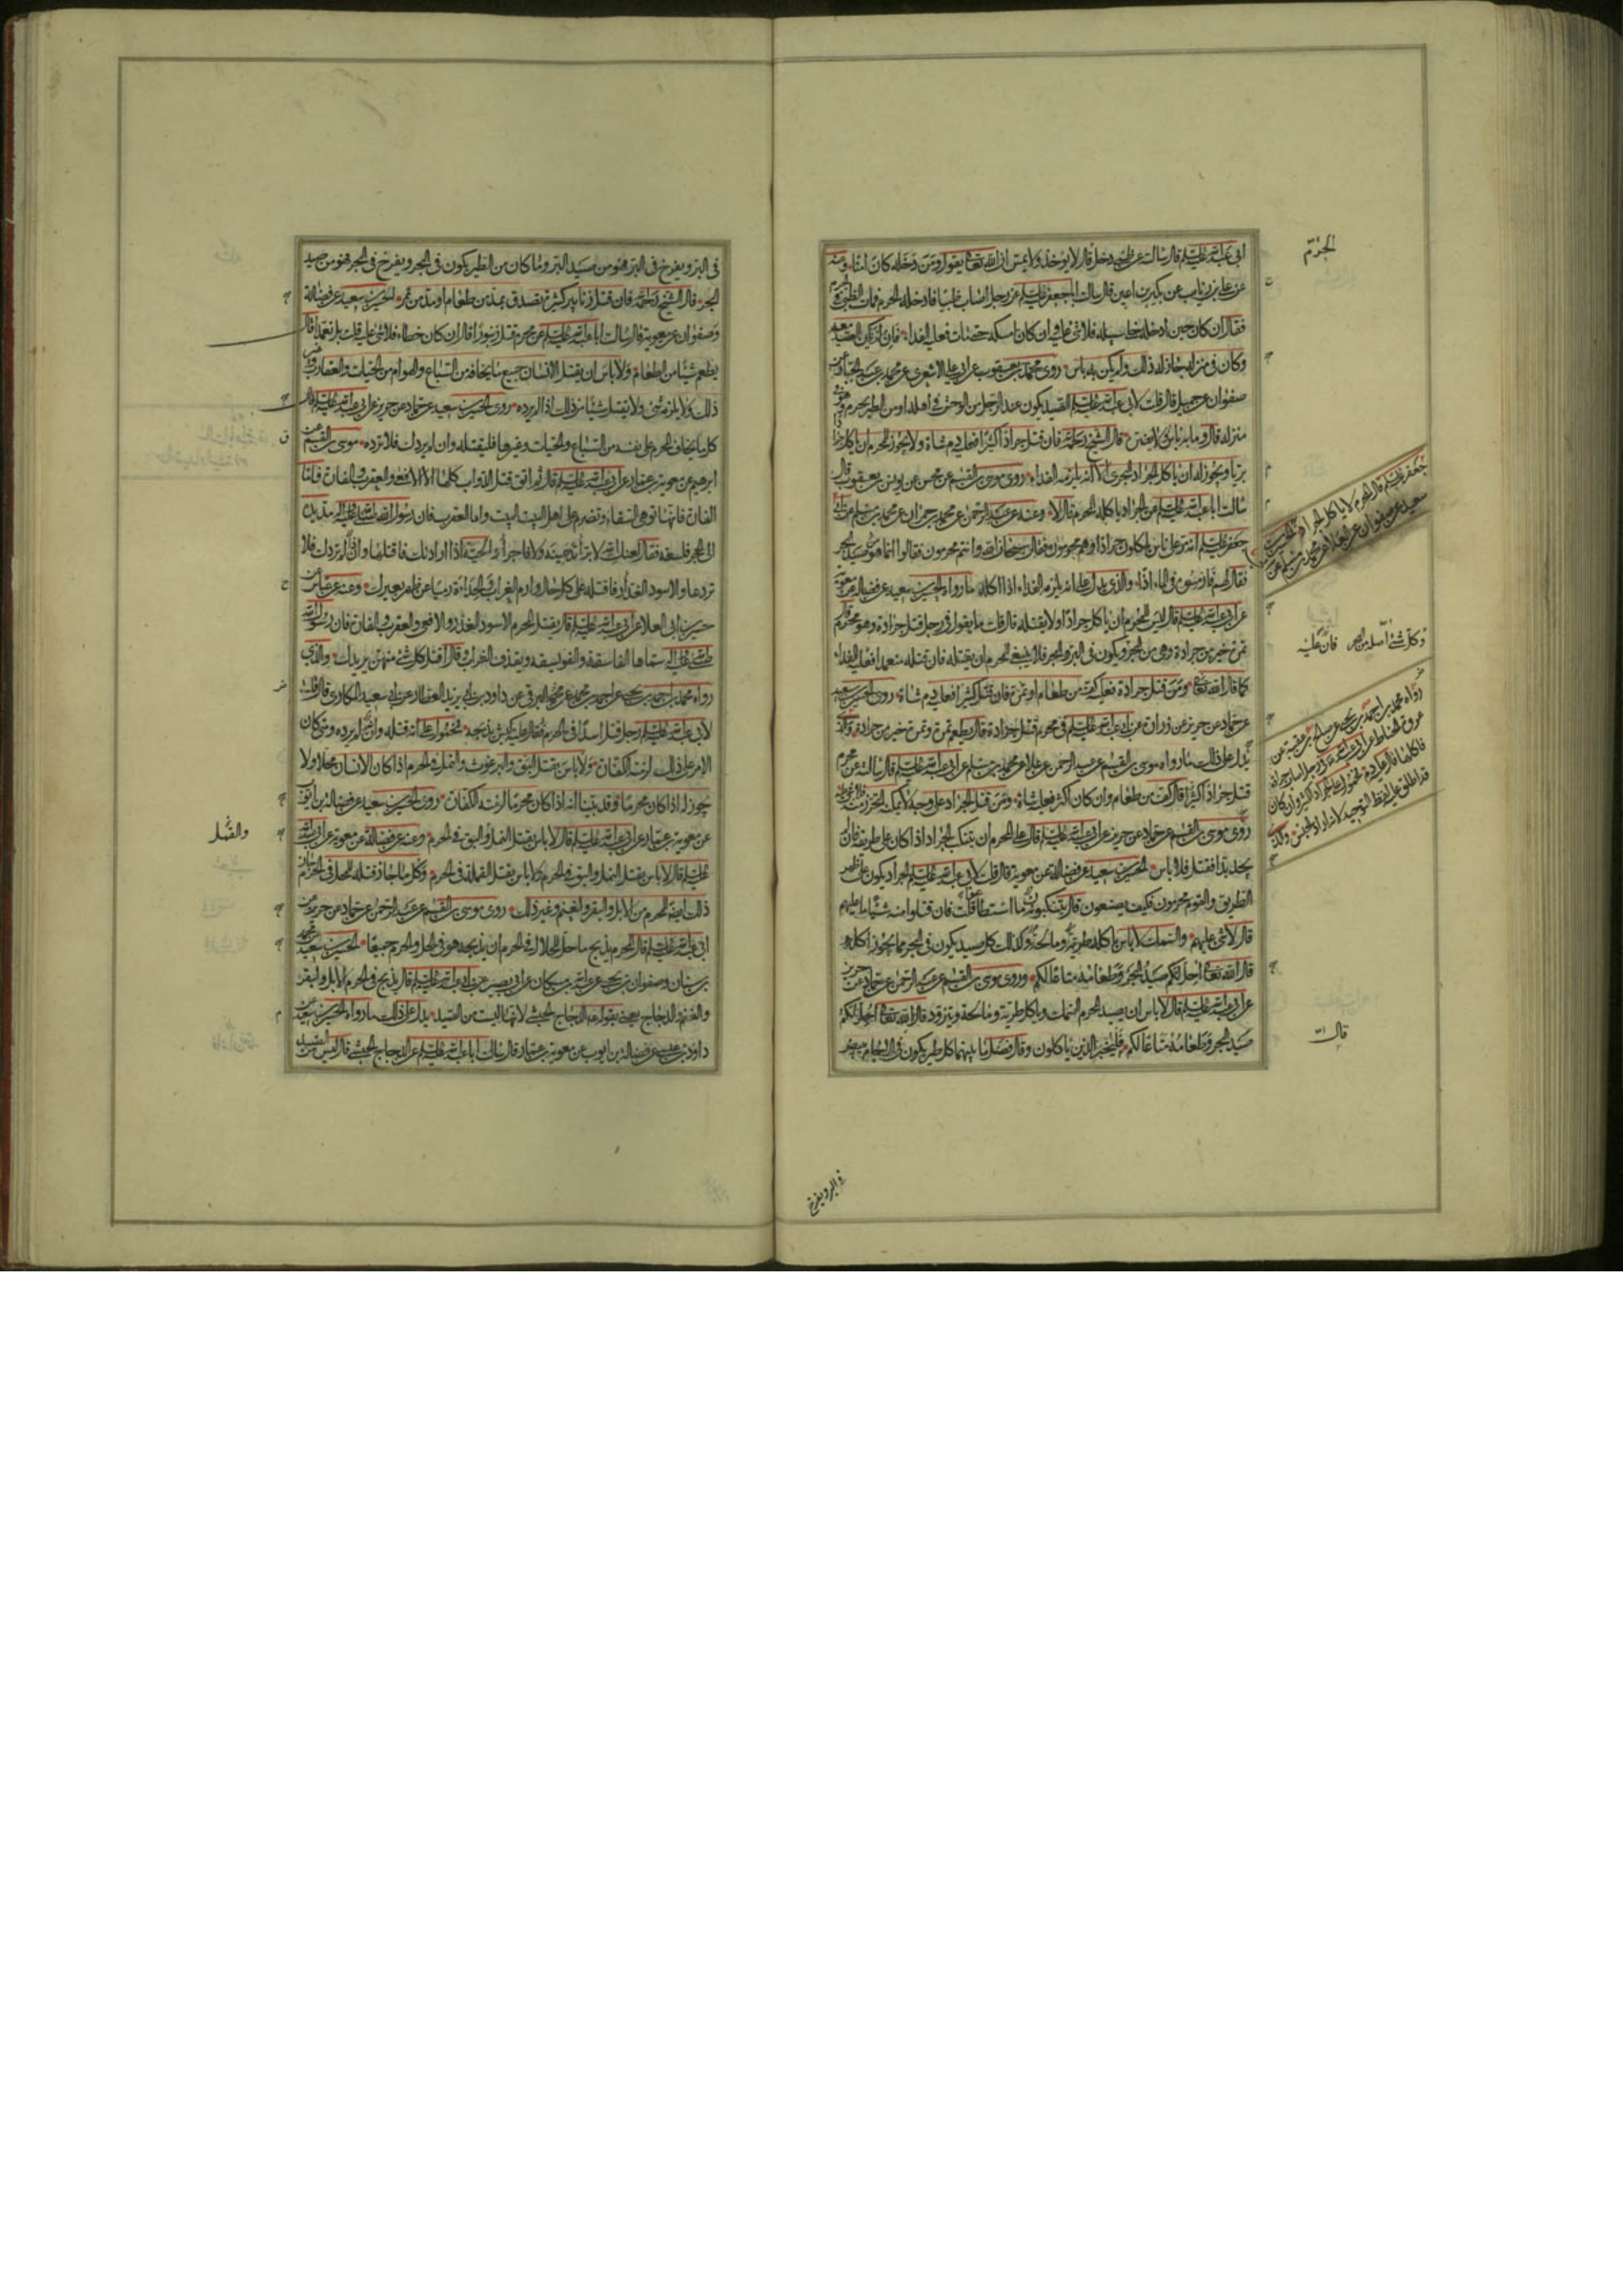 ابي عبد الله عليه السلام قال سالت عن ظبي دخل قال لا يوخذ ولا يمس ان الله تعالى يقول ومن دخله كان امنا
عن بكير بن اعين قال سالت ابا جعفر عليه السلام عن رجل اصاب ظبيا فادخله الحرم فمات الظبي في
فقال ان كان حين ادخله خلى سبيله فلا شي عليه وان كان امسكه حتى مات فعليه الفداء
وكان في منزله جاز له ذلك ولم يكن به باس روى محمد بن يعقوب عن ابي علي الاشعري عن محمد بن عبد الجبار عن
صفوان عن جميل قال قلت لابي عبد الله عليه السلام الصيد يكون عند الرجل من الوحش في اهله او من الطير يحرم وهو في
منزله قال وما به باس لا يضره قال الشيخ رحمه الله فان قتل جرادا كثيرا فعليه دم شاة ولا يجوز للمحرم ان ياكل جرادا
بريا ويجوز له ان ياكل الجراد البحري الا انه يلزمه الفداء روى موسى بن القسم عن محسن عن يونس بن يعقوب قال
سالت ابا عبد الله عليه السلام عن الجراد ياكله المحرم قال لا وعنه عن عبد الرحمن عن محمد بن حمران عن محمد بن مسلم عن ابي
جعفر عليه السلام انه مر على ناس ياكلون جرادا وهم محرمون فقال سبحان الله وانتم محرمون فقالوا انما هو من صيد البحر
فقال لهم فارمسوه في الماء اذا والذي يدل على انه يلزمه الفداء اذا اكله ما رواه الحسين بن سعيد عن فضالة عن معوية
عن ابي عبد الله عليه السلام قال ليس للمحرم ان ياكل جرادا ولا يقتله قال قلت ما يقول في رجل قتل جرادة وهو محرم قال
تمرة خير من جرادة وهي من البحر ويكون في البر والبحر فلا ينبغي للمحرم ان يقتله فان قتله متعمدا فعليه الفداء
كما قال الله تعالى ومن قتل جرادة فعليه كف من طعام او تمرة فان قتل كثيرا فعليه دم شاة روى الحسين بن سعيد
عن حماد عن حريز عن زرارة عن ابي عبد الله عليه السلام في محرم قتل جرادة قال يطعم تمرة وتمرة خير من جرادة والذي
يدل على ذلك ما رواه موسى بن القسم عن عبد الرحمن عن علاء عن محمد بن مسلم عن ابي عبد الله عليه السلام قال سالته عن محرم
قتل جرادا كثيرا قال كف من طعام وان كان اكثر فعليه شاة ومن قتل الجراد على وجه لا يمكنه التحرز منه فلا شي عليه
روى موسى بن القسم عن حماد عن حريز عن ابي عبد الله عليه السلام قال على المحرم ان يتنكب الجراد اذا كان على طريقه فان لم
يجد بدا فقتل فلا باس الحسين بن سعيد عن فضالة عن معوية قال قلت لابي عبد الله عليه السلام الجراد يكون على ظهر
الطريق والقوم محرمون فكيف يصنعون قال يتنكبونه ما استطاعوا قلت فان قتلوا منه شيئا ما عليهم
قال لا شي عليهم والسمك لا باس باكله طريه ومالحه وكذلك كل صيد يكون في البحر مما يجوز اكله
قال الله تعالى احل لكم صيد البحر وطعامه متاعا لكم وروى موسى بن القسم عن عبد الرحمن عن حماد عن حريز
عن ابي عبد الله عليه السلام قال لا باس ان يصيد المحرم السمك وياكل طريه ومالحه ويتزود قال الله تعالى احل لكم
صيد البحر وطعامه متاعا لكم فليختر الذين ياكلون وقال فصل ما بينهما كل طير يكون في الاجام يبيض
في البر ويفرخ
الحرم
وكل شي اصله من البحر فان عليه
قال
في البر ويفرخ في البر فهو من صيد البر وما كان من الطير يكون في البحر ويفرخ في البحر فهو من صيد
البحر قال الشيخ رحمه الله فان قتل زنابير كثيرة تصدق بمد من طعام او مد من تمر الحسين بن سعيد عن فضالة
وصفوان عن معوية قال سالت ابا عبد الله عليه السلام عن محرم قتل زنبورا قال ان كان خطاء فلا شي عليه قلت بل تعمدا قال
يطعم شيئا من الطعام ولا باس ان يقتل الانسان جميع ما يخافه من السباع والهوام من الحيات والعقارب وغير
ذلك ولا يلزمه شي ولا يقتل شيئا من ذلك اذا لم يرده روى الحسين بن سعيد عن حماد عن حريز عن ابي عبد الله عليه السلام قال
كل ما يخاف المحرم على نفسه من السباع والحيات وغيرها فليقتله وان لم يردك فلا ترده موسى بن القسم عن
ابرهيم عن معوية بن عمار عن ابي عبد الله عليه السلام قال ثم اتق قتل الدواب كلها الا الافعى والعقرب والفارة فاما
الفارة فانها توهي السقاء وتضرم على اهل البيت البيت واما العقرب فان رسول الله صلى الله عليه واله مد يده
الى الحجر فلسعته فقال لعنك الله لا برا تدعينه ولا فاجرا والحية اذا ارادتك فاقتلها وان لم تردك فلا
تردها والاسود الغدر فاقتله على كل حال وارم الغراب والحداة رميا عن ظهر بعيرك وعنه عن عباس عن
حسين بن ابي العلا عن ابي عبد الله عليه السلام قال يقتل المحرم الاسود الغدر والافعى والعقرب والفارة فان رسول الله
صلى الله عليه واله سماها الفاسقة والفويسقة ويقذف الغراب وقال اقتل كل شي منهن يريدك والذي
رواه محمد بن احمد بن يحيى عن احمد بن محمد عن محمد البرقي عن داود بن ابي يزيد العطار عن ابي سعيد المكاري قال قلت
لابي عبد الله عليه السلام رجل قتل اسدا في الحرم فقال عليه كبش يذبحه فمحمول على انه قتله وان لم يرده ومتى كان
الامر على ذلك لزمته الكفارة ولا باس بقتل البق والبرغوث والنمل في الحرم اذا كان الانسان محلا ولا
يجوز له اذا كان محرما وقد بينا انه اذا كان محرما لزمته الكفارة روى الحسين بن سعيد عن فضالة بن ايوب
عن معوية بن عمار عن ابي عبد الله عليه السلام قال لا باس بقتل النمل والبق في الحرم وعنه عن فضالة عن معوية عن ابي عبد الله
عليه السلام قال لا باس بقتل النمل والبق في الحرم ولا باس بقتل القملة في الحرم وكل ما جاز قتله للمحل في الحرم
ذلك ايضا للمحرم من الابل والبقر والغنم وغير ذلك روى موسى بن القسم عن عبد الرحمن عن حماد عن حريز عن
ابي عبد الله عليه السلام قال المحرم يذبح ما حل للحلال في الحرم ان يذبحه هو في الحل والحرم جميعا الحسين بن سعيد عن محمد
بن سنان وصفوان بن يحيى عن عبد الله بن مسكان عن ابي بصير عن ابي عبد الله عليه السلام قال يذبح في الحرم الابل والبقر
والغنم والدجاج يعني بقوله الدجاج الحبشي لانها ليست من الصيد يدل على ذلك ما رواه الحسين بن سعيد عن
داود بن عيسى عن فضالة بن ايوب عن معوية بن عمار قال سالت ابا عبد الله عليه السلام عن الدجاج الحبشي قال ليس من الصيد
والقمل